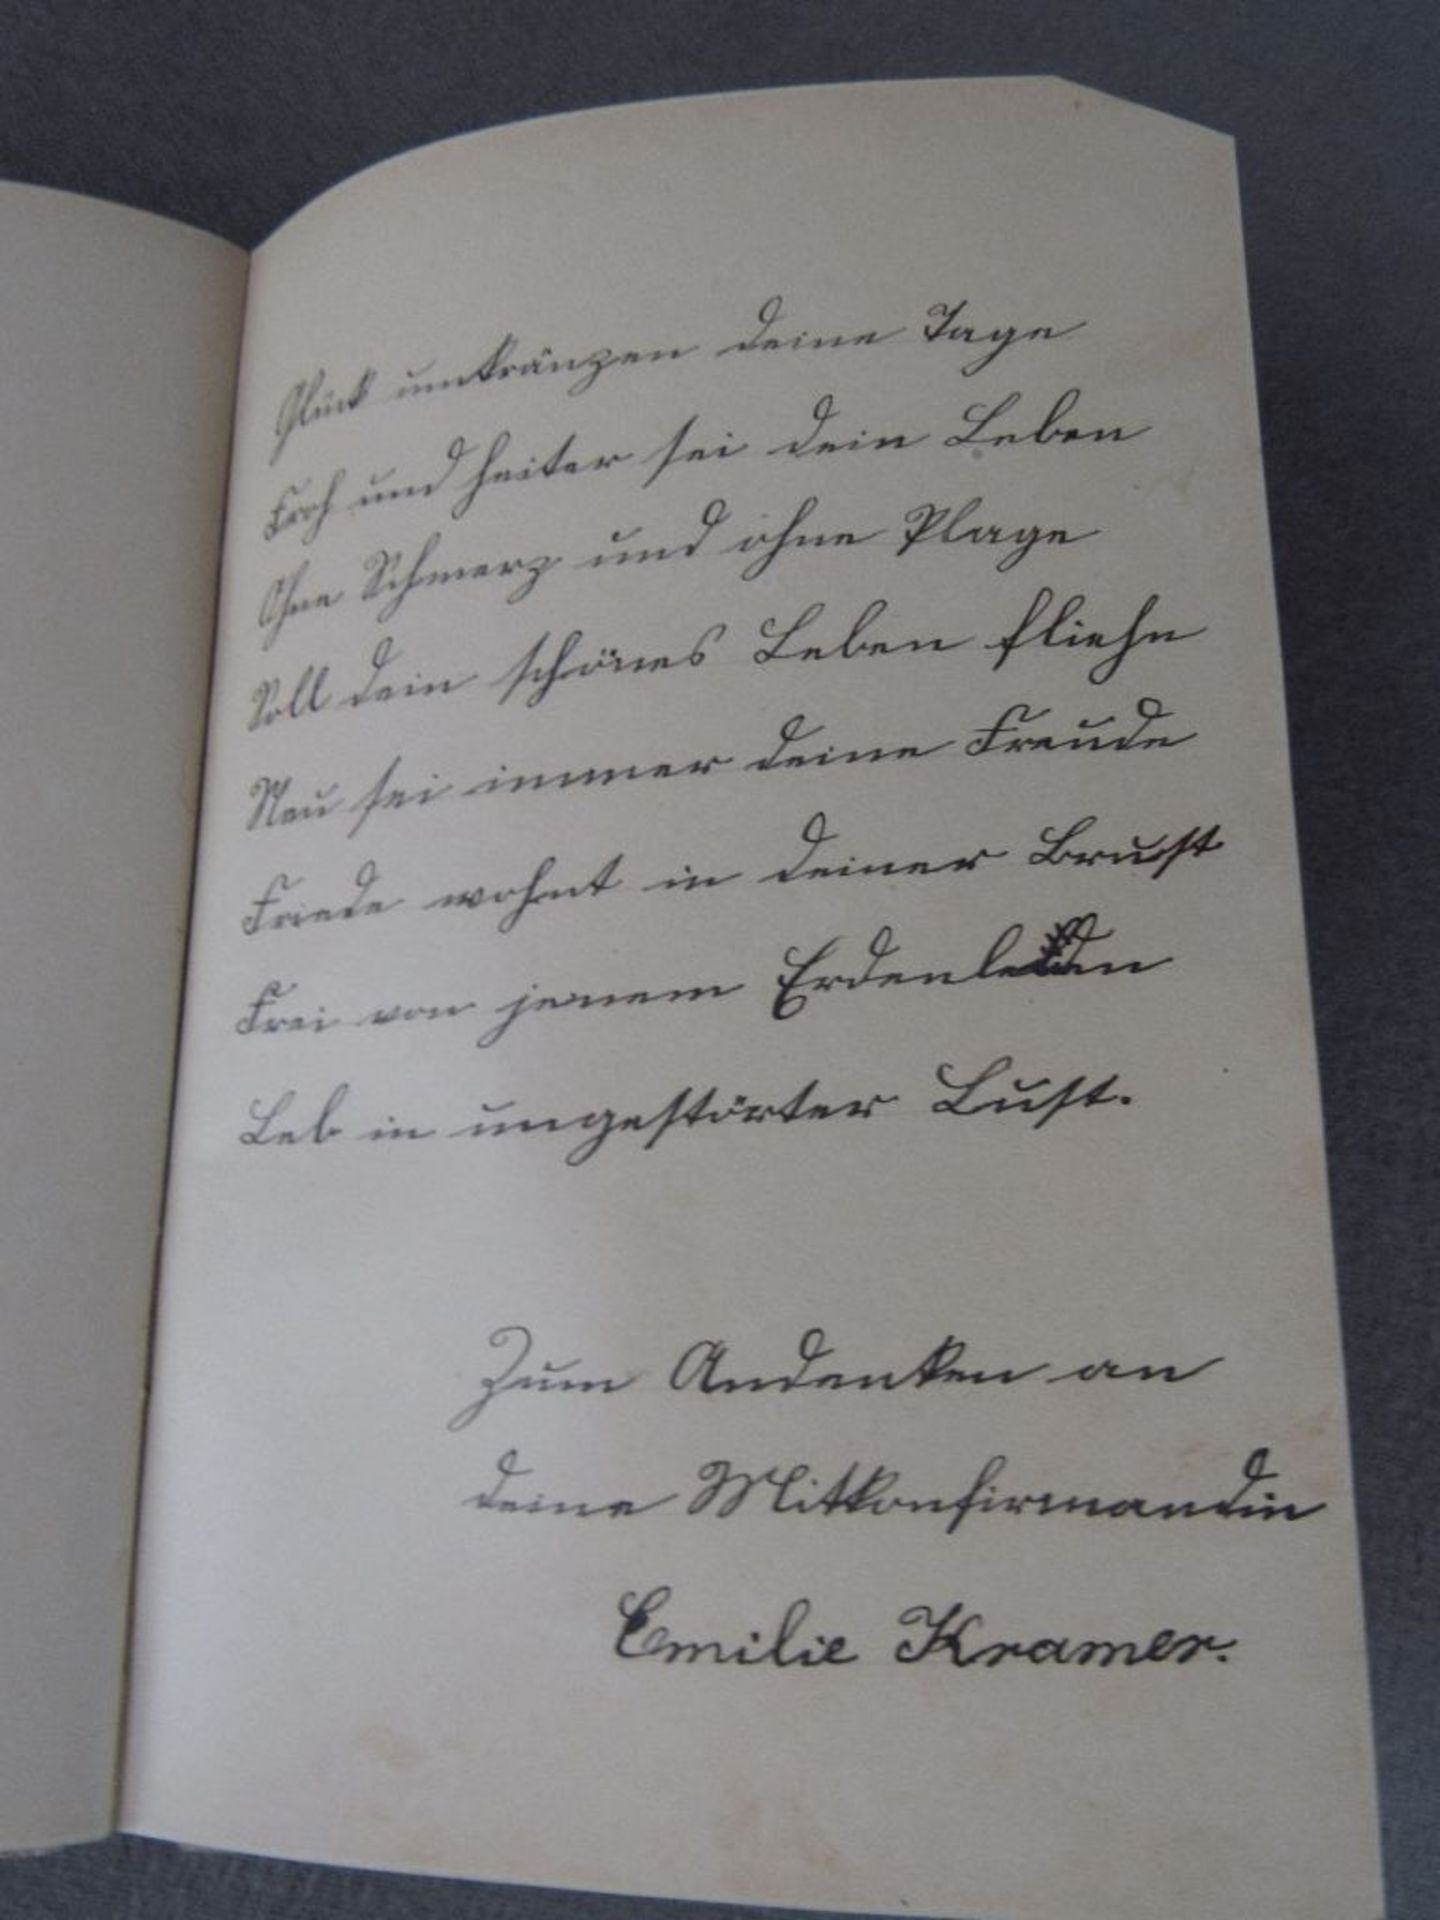 Glück umkränzen deine Tage
Froh und heiter sei dein Leben
Ohne Schmerz und ohne Plage
Soll dein schönes Leben fliehn
Neu sei immer deine Freude
Friede wohnt in deiner Brust
Frei von jenem Erdenleiden
Leb in ungestörter Lust.
Zum Andenken an
deine Mitkonfirmandin
Emilie Kramer.